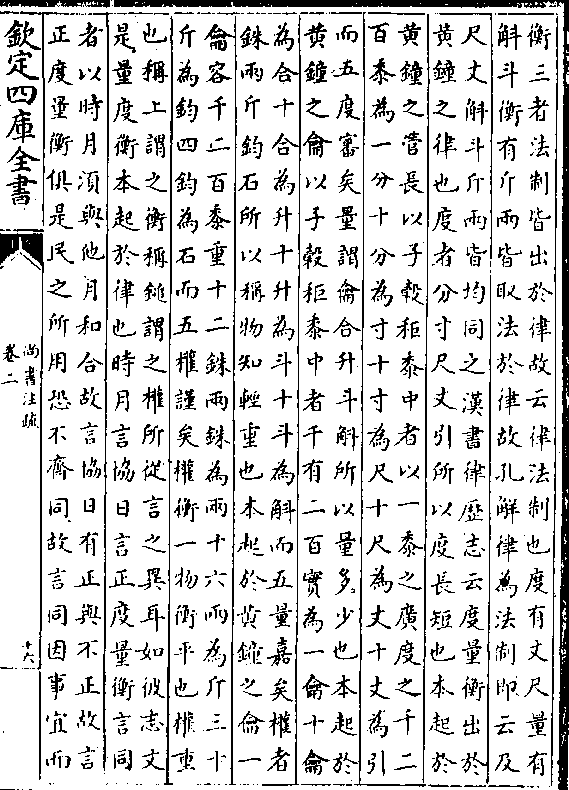 衡三者法制皆出於律故云律法制也度有丈尺量有
斛斗衡有斤兩皆取法於律故孔解律為法制即云及
尺丈斛斗斤兩皆均同之漢書律歷志云度量衡出於
黃鐘之律也度者分寸尺丈引所以度長短也本起於
黃鐘之管長以子穀秬黍中者以一黍之廣度之千二
百黍為一分十分為寸十寸為尺十尺為丈十丈為引
而五度審矣量謂龠合升斗斛所以量多少也本起於
黃鐘之龠以子穀秬黍中者千有二百實為一龠十龠
為合十合為升十升為斗十斗為斛而五量嘉矣權者
銖兩斤鈞石所以稱物知輕重也本起於黃鐘之龠一
龠容千二百黍重十二銖兩銖為兩十六兩為斤三十
斤為鈞四鈞為石而五權謹矣權衡一物衡平也權重
也稱上謂之衡稱鎚謂之權所從言之異耳如彼志文
是量度衡本起於律也時月言協日言正度量衡言同
者以時月須與他月和合故言協日有正與不正故言
正度量衡俱是民之所用恐不齊同故言同因事宜而
欽定四庫全書
尚書注疏
卷二
十六